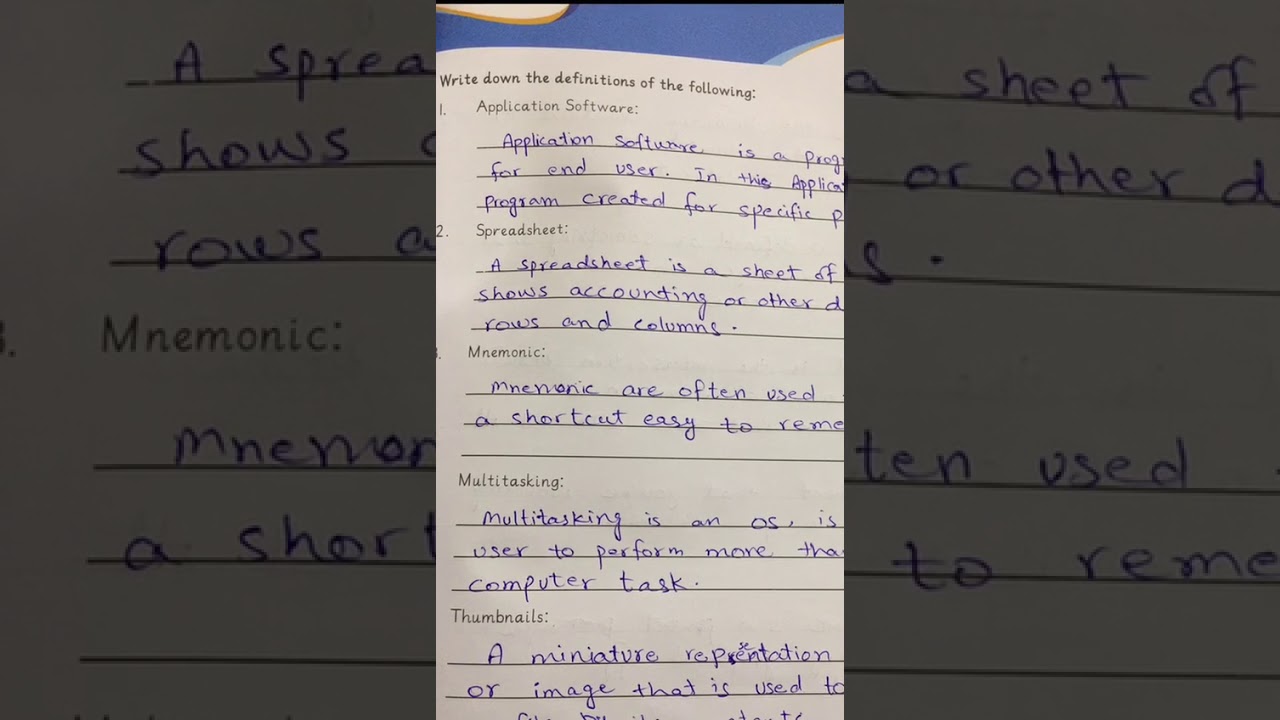 Write down the definitions of the following:
1. Application Software:
Application Software is a prog
for end user. In this Applica
program created for specific p
2. Spreadsheet:
A spreadsheet is a sheet of
shows accounting or other d
rows and columns.
Mnemonic:
mnemonic are often used
a shortcut easy to reme
Multitasking:
Multitasking is an os, is
user to perform more tha
computer task.
Thumbnails:
A miniature
or image that is used to
A sprea
shows
rows a
Mnemonic:
mnemon
a short
a sheet of
or other d
s.
ten used
to reme